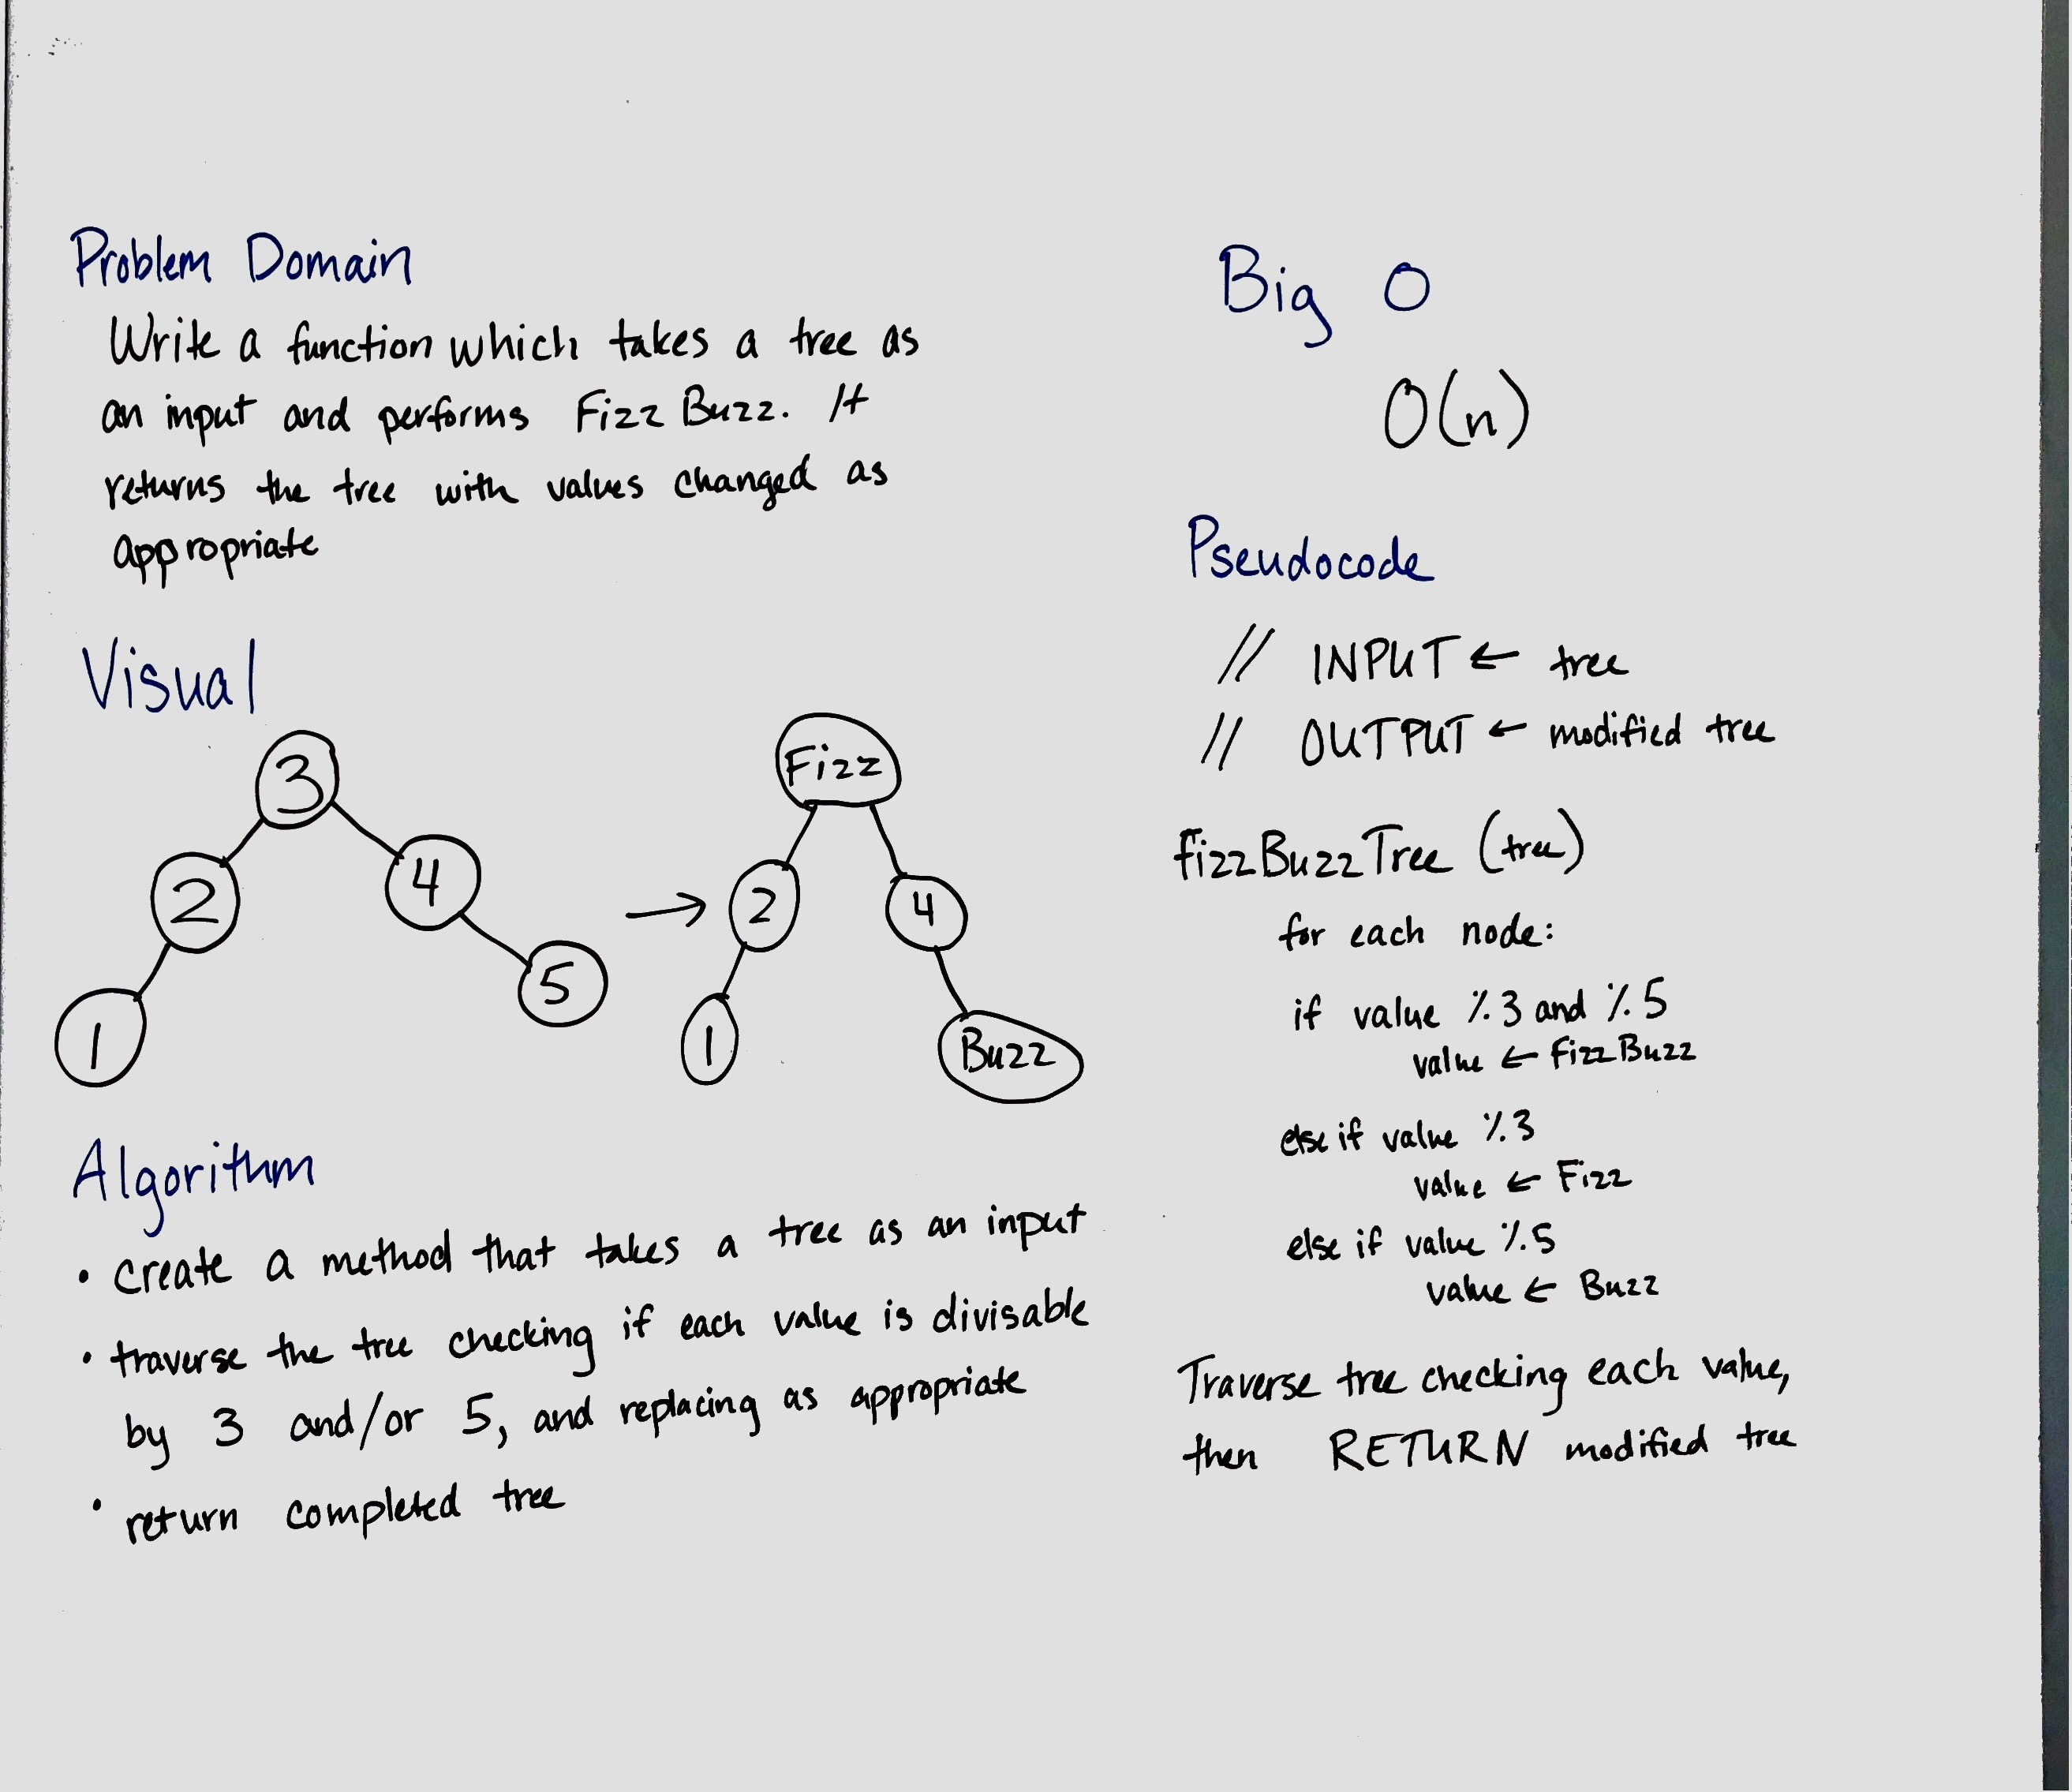 Problem Domain
Write a function which takes a tree as
an input and performs Fizz Buzz. It
returns the tree with values changed as
appropriate
Visual
3
2
4
5
1
→
Fizz
2
4
1
Buzz
Algorithm
• create a method that takes a tree as an input
• traverse the tree checking if each value is divisable
by 3 and/or 5, and replacing as appropriate
• return completed tree
Big O
O(n)
Pseudocode
// INPUT ← tree
// OUTPUT ← modified tree
fizzBuzzTree (tree)
for each node:
if value %3 and %5
value ← FizzBuzz
else if value %3
value ← Fizz
else if value %5
value ← Buzz
Traverse tree checking each value,
then RETURN modified tree